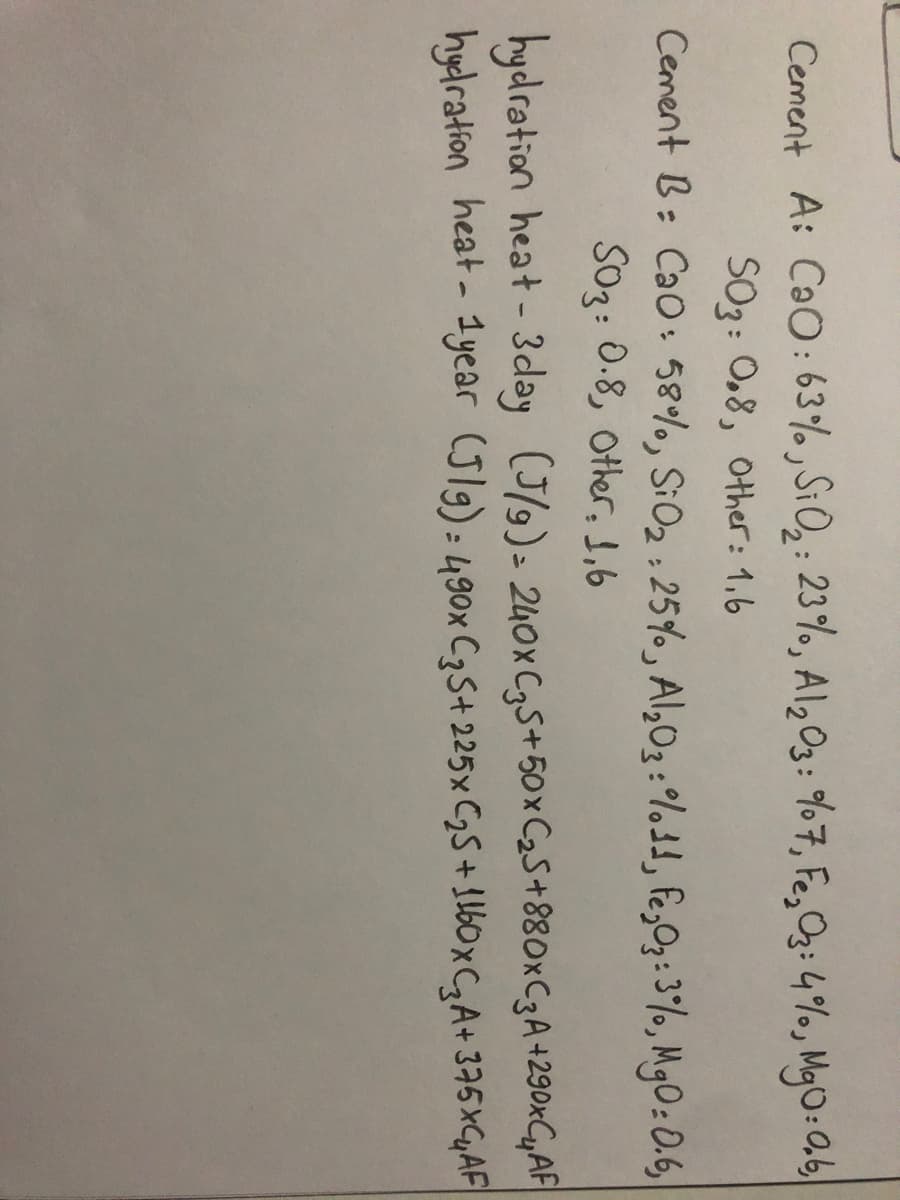 Cement A: CaO: 63%, SiO₂: 23%, Al₂O₃: %7, Fe₂O₃: 4%, MgO: 0,6,
SO₃: 0,8, other: 1,6
Cement B: CaO: 58%, SiO₂: 25%, Al₂O₃: %11, Fe₂O₃: 3%, MgO: 0.6,
SO₃: 0.8, other: 1,6
hydration heat - 3day (J/g) = 240xC₃S+50xC₂S+880xC₃A+290xC₄AF
hydration heat - 1year (J/g) = 490xC₃S+225xC₂S+1160xC₃A+375xC₄AF